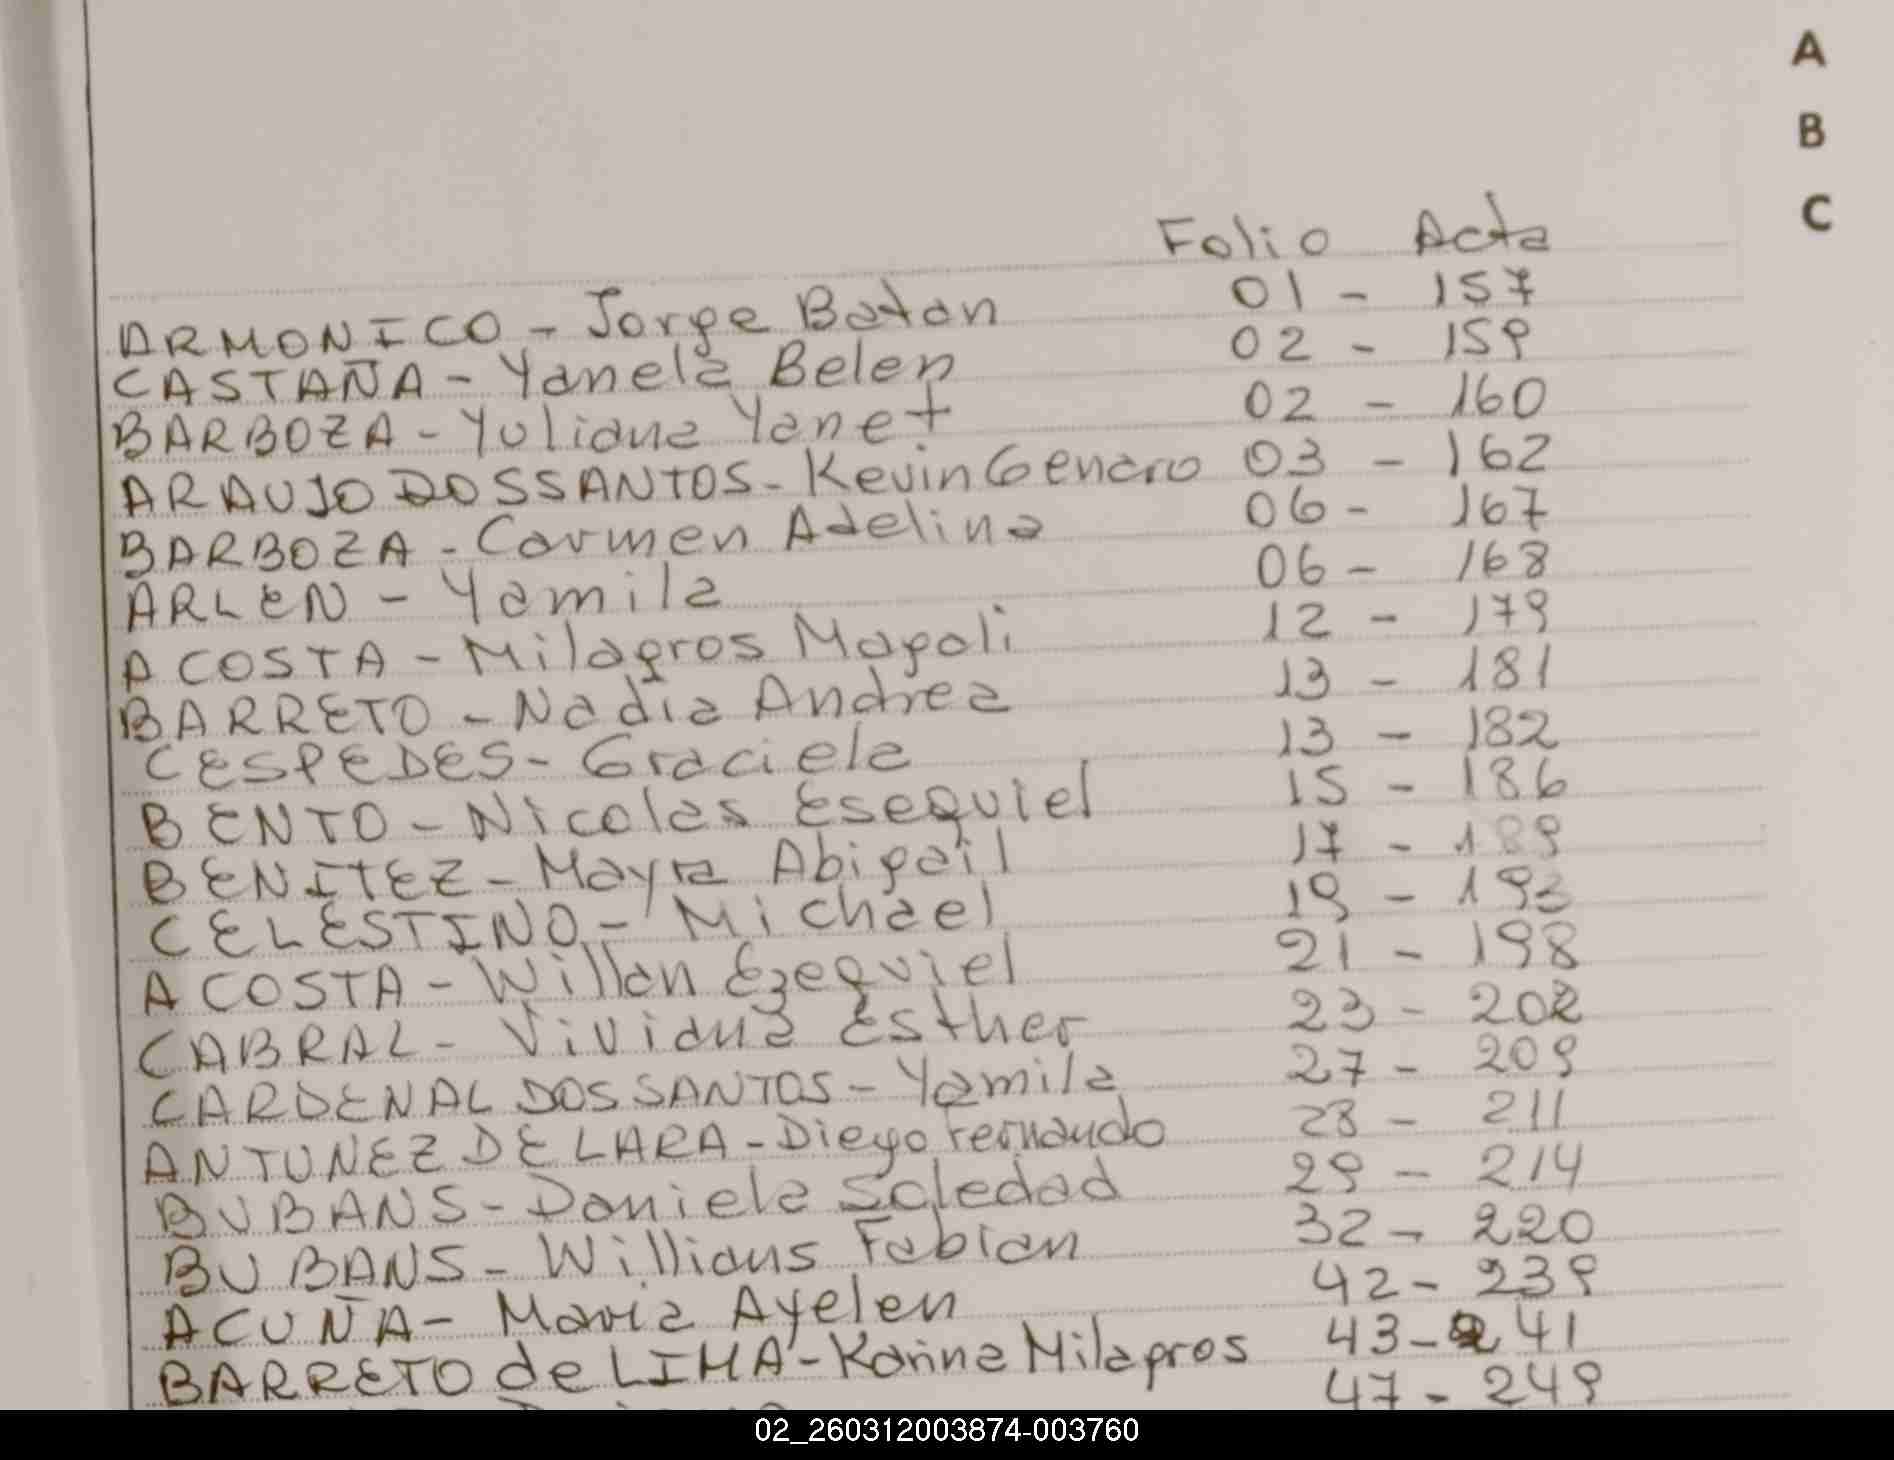 A
B
C
Folio Acta
ARMONICO - Jorge Batan 01 - 157
CASTAÑA - Yanela Belen 02 - 159
BARBOZA - Yuliana Yanet 02 - 160
ARAUJO DOSSANTOS - Kevin Genaro 03 - 162
BARBOZA - Carmen Adelina 06 - 167
ARLEN - Yamila 06 - 168
ACOSTA - Milagros Magali 12 - 179
BARRETO - Nadia Andrea 13 - 181
CESPEDES - Graciela 13 - 182
BENTO - Nicolas Esequiel 15 - 186
BENITEZ - Mayra Abigail 17 - 189
CELESTINO - Michael 19 - 193
ACOSTA - Willan Ezequiel 21 - 198
CABRAL - Viviana Esther 23 - 202
CARDENAL DOSSANTOS - Yamila 27 - 209
ANTUNEZ DE LARA - Diego Fernando 28 - 211
BUBANS - Daniela Soledad 29 - 214
BUBANS - Willians Fabian 32 - 220
ACUÑA - Maria Ayelen 42 - 239
BARRETO de LIMA - Karina Milagros 43 - 241
47 - 249
02_260312003874-003760